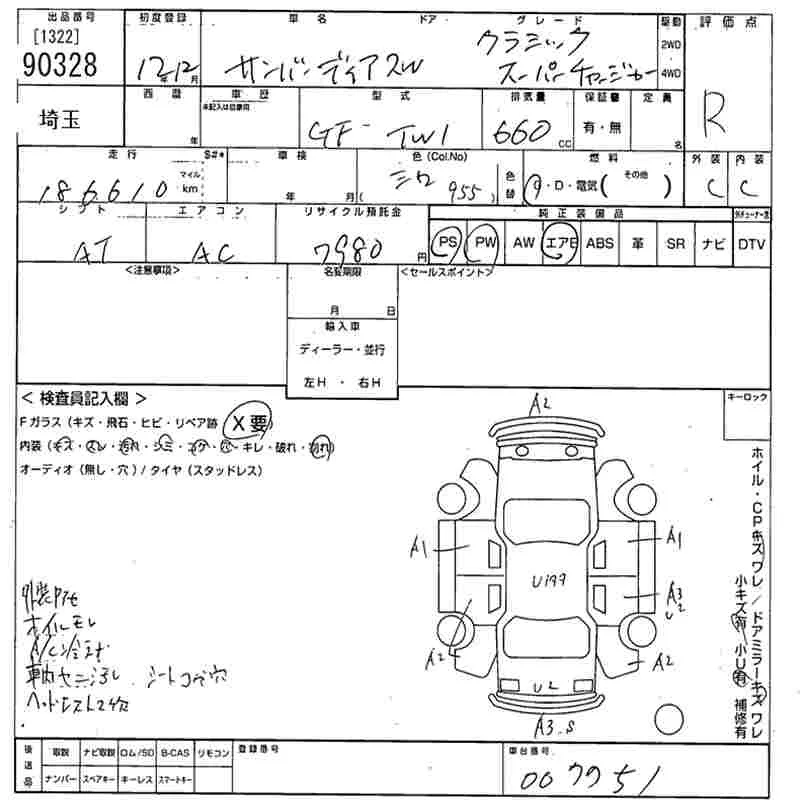 出品番号 初度登録 車名 ドア グレード 駆動 評価点
[1322] 90328 12年12月 サンバーディアスW クラシック スーパーチャージャー 2WD 4WD R
埼玉 西暦 年 車歴 未記入は自家用 型式 排気量 保証書 定員
GF- TW1 660 CC 有・無 名
走行 S#* 車検 色 (Col.No) 燃料 外装 内装
186610 マイル km 年 月 ( 955 ) 色替 G・D・電気( その他 ) C C
シフト エアコン リサイクル預託金 純正装備品
AT AC 7980 円 PS PW AW エアB ABS 革 SR ナビ DTV
<注意事項> 名変期限 <セールスポイント>
月 日
輸入車
ディーラー・並行
左H ・ 右H
< 検査員記入欄 > キーロック
Fガラス (キズ・飛石・ヒビ・リペア跡 X要)
内装 (キズ・スレ・汚れ・シミ・コゲ・穴・キレ・破れ・割れ)
オーディオ (無し・穴) / タイヤ (スタッドレス)
A2
A1 A1
U199
A3 U2
A2 A2
U2
A3.S
ホイル・CPキズ ワレ / ドアミラーキズ ワレ
小キズ有 小U有 補修有
シートコゲ穴
後送品 取説 ナビ取説 ロム/SD B-CAS リモコン 登録番号 車台番号
ナンバー スペアキー キーレス スマートキー 007751